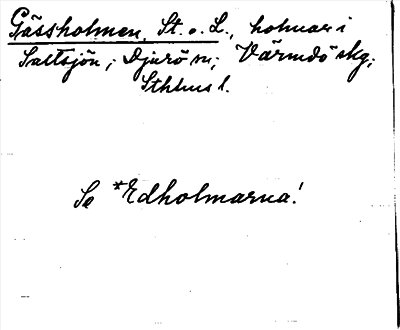 Gässholmen, St. o. L., holmar i
Saltsjön; Djurö sn; Värmdö skg;
Sthlms l.
Se *Edholmarna!